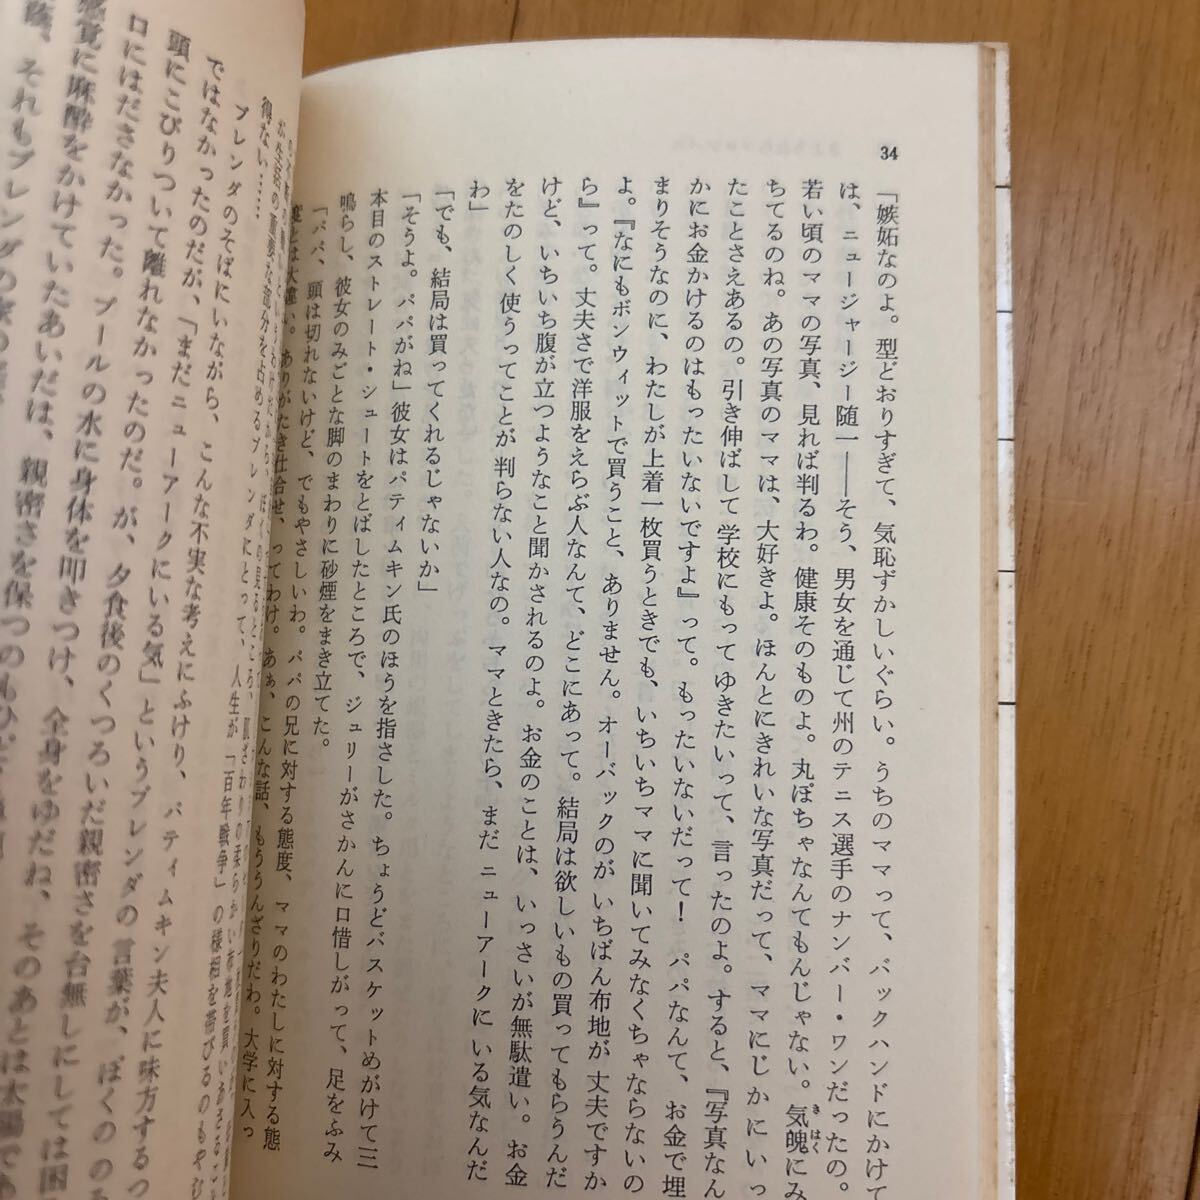 34
「嫉妬なのよ。型どおりすぎて、気恥ずかしいぐらい。うちのママって、バックハンドにかけて
は、ニュージャージー随一――そう、男女を通じて州のテニス選手のナンバー・ワンだったの。
若い頃のママの写真、見れば判るわ。健康そのものよ。丸ぽちゃなんてもんじゃない。気魄にみ
きはく
ちてるのね。あの写真のママは、大好きよ。ほんとにきれいな写真だって、ママにじかにいっ
たことさえあるの。引き伸ばして学校にもってゆきたいって、言ったのよ。すると、『写真なん
かにお金かけるのはもったいないですよ』って。もったいないだって！　パパなんて、お金で埋
まりそうなのに、わたしが上着一枚買うときでも、いちいちママに聞いてみなくちゃならないの
よ。『なにもボンウィットで買うこと、ありません。オーバックのがいちばん布地が丈夫ですか
ら』って。丈夫さで洋服をえらぶ人なんて、どこにあって。結局は欲しいもの買ってもらうんだ
けど、いちいち腹が立つようなこと聞かされるのよ。お金のことは、いっさいが無駄遣い。お金
をたのしく使うってことが判らない人なの。ママときたら、まだニューアークにいる気なんだ
わ」
「でも、結局は買ってくれるじゃないか」
「そうよ。パパがね」彼女はパティムキン氏のほうを指さした。ちょうどバスケットめがけて三
本目のストレート・シュートをとばしたところで、ジュリーがさかんに口惜しがって、足をふみ
鳴らし、彼女のみごとな脚のまわりに砂煙をまき立てた。
「パパ、頭は切れないけど、でもやさしいわ。パパの兄に対する態度、ママのわたしに対する態
度とは大違い。ありがたき仕合せ、ってわけ。あぁ、こんな話、もううんざりだわ。大学に入っ
が生活の重要な部分を占めるブレンダにとって、人生が「百年戦争」の様相を帯びるのもやむ
得ない……
ブレンダのそばにいながら、こんな不実な考えにふけり、パティムキン夫人に味方するつ
ではなかったのだが、「まだニューアークにいる気」というブレンダの言葉が、ぼくの
頭にこびりついて離れなかったのだ。が、夕食後のくつろいだ親密さを台無しにしては困
口にはださなかった。プールの水に身体を叩きつけ、全身をゆだね、そのあとは太陽で
感覚に麻酔をかけていたあいだは、親密さを保つのも